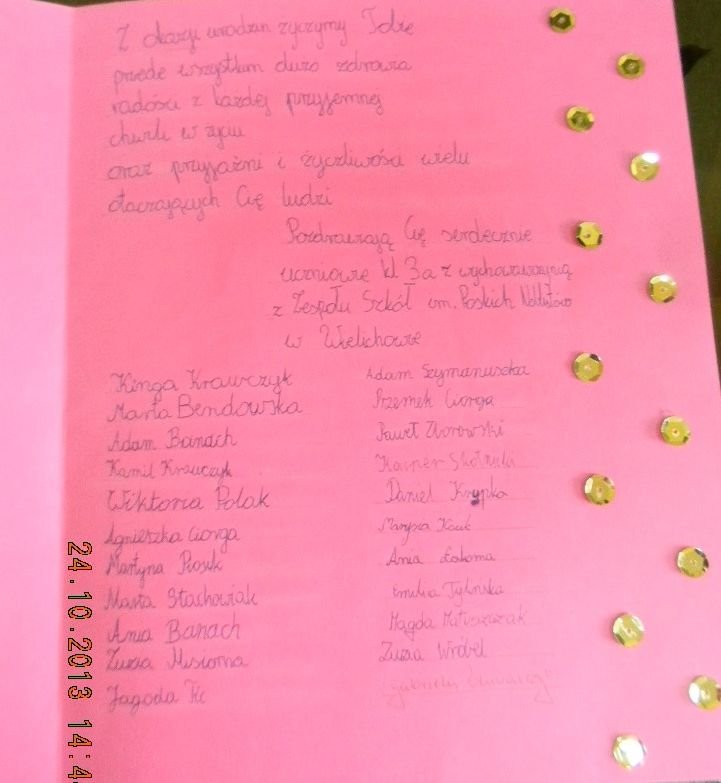 Z okazji urodzin życzymy Tobie
przede wszystkim dużo zdrowia
radości z każdej przyjemnej
chwili w życiu
oraz przyjaźni i życzliwości wielu
otaczających Cię ludzi
Pozdrawiają Cię serdecznie
uczniowie kl 3a z wychowawczynią
z Zespołu Szkół im. Polskich Noblistów
w Wielichowie
Kinga Krawczyk
Marta Bendowska
Adam Banach
Kamil Krawczyk
Wiktoria Polak
Agnieszka Giorga
Martyna Ptosik
Marta Stachowiak
Ania Banach
Zuzia Misiorna
Jagoda
Adam Szymanuszka
Przemek Giorga
Paweł Zborowski
Kacper
Daniel Krypka
Marysia
Ania Łakoma
Emilia Tylińska
Magda
Zuzia Wróbel
24.10.2013 14:4